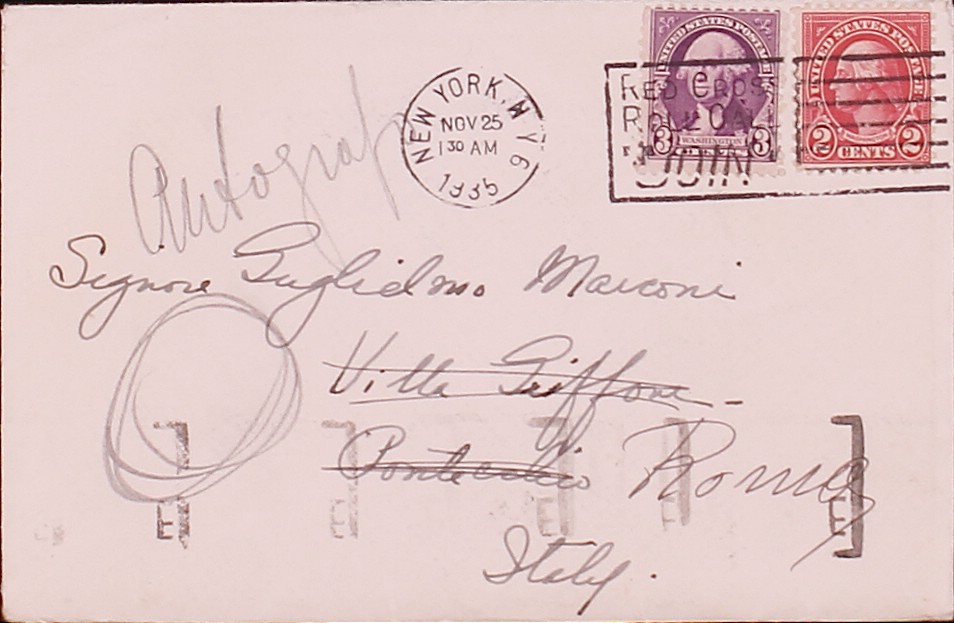 UNITED STATES POSTAGE
3 WASHINGTON 3
UNITED STATES POSTAGE
2 CENTS 2
NEW YORK, N.Y. 6
NOV 25
1 30 AM
1935
RED CROSS
ROLL CALL
JOIN
Autograf
Signore Guglielmo Marconi
Villa Griffone
Pontecchio Roma
Italy.